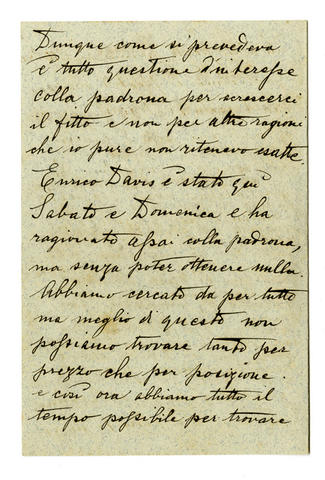 Dunque come si prevedeva
è tutto questione d'interesse
colla padrona per screscerci
il fitto e non per altre ragioni
che io pure non ritenevo esatte.
Enrico Davis è stato qui
Sabato e Domenica e ha
ragionato assai colla padrona,
ma senza poter ottenere nulla.
Abbiamo cercato da per tutto
ma meglio di questo non
possiamo trovare tanto per
prezzo che per posizione.
e così ora abbiamo tutto il
tempo possibile per trovare